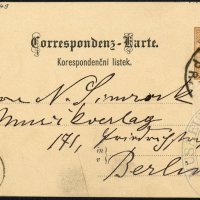 Correspondenz-Karte.
Korespondenční listek.
N. Simrock
Musikverlag
171, Friedrichstr
in
v
Berlin